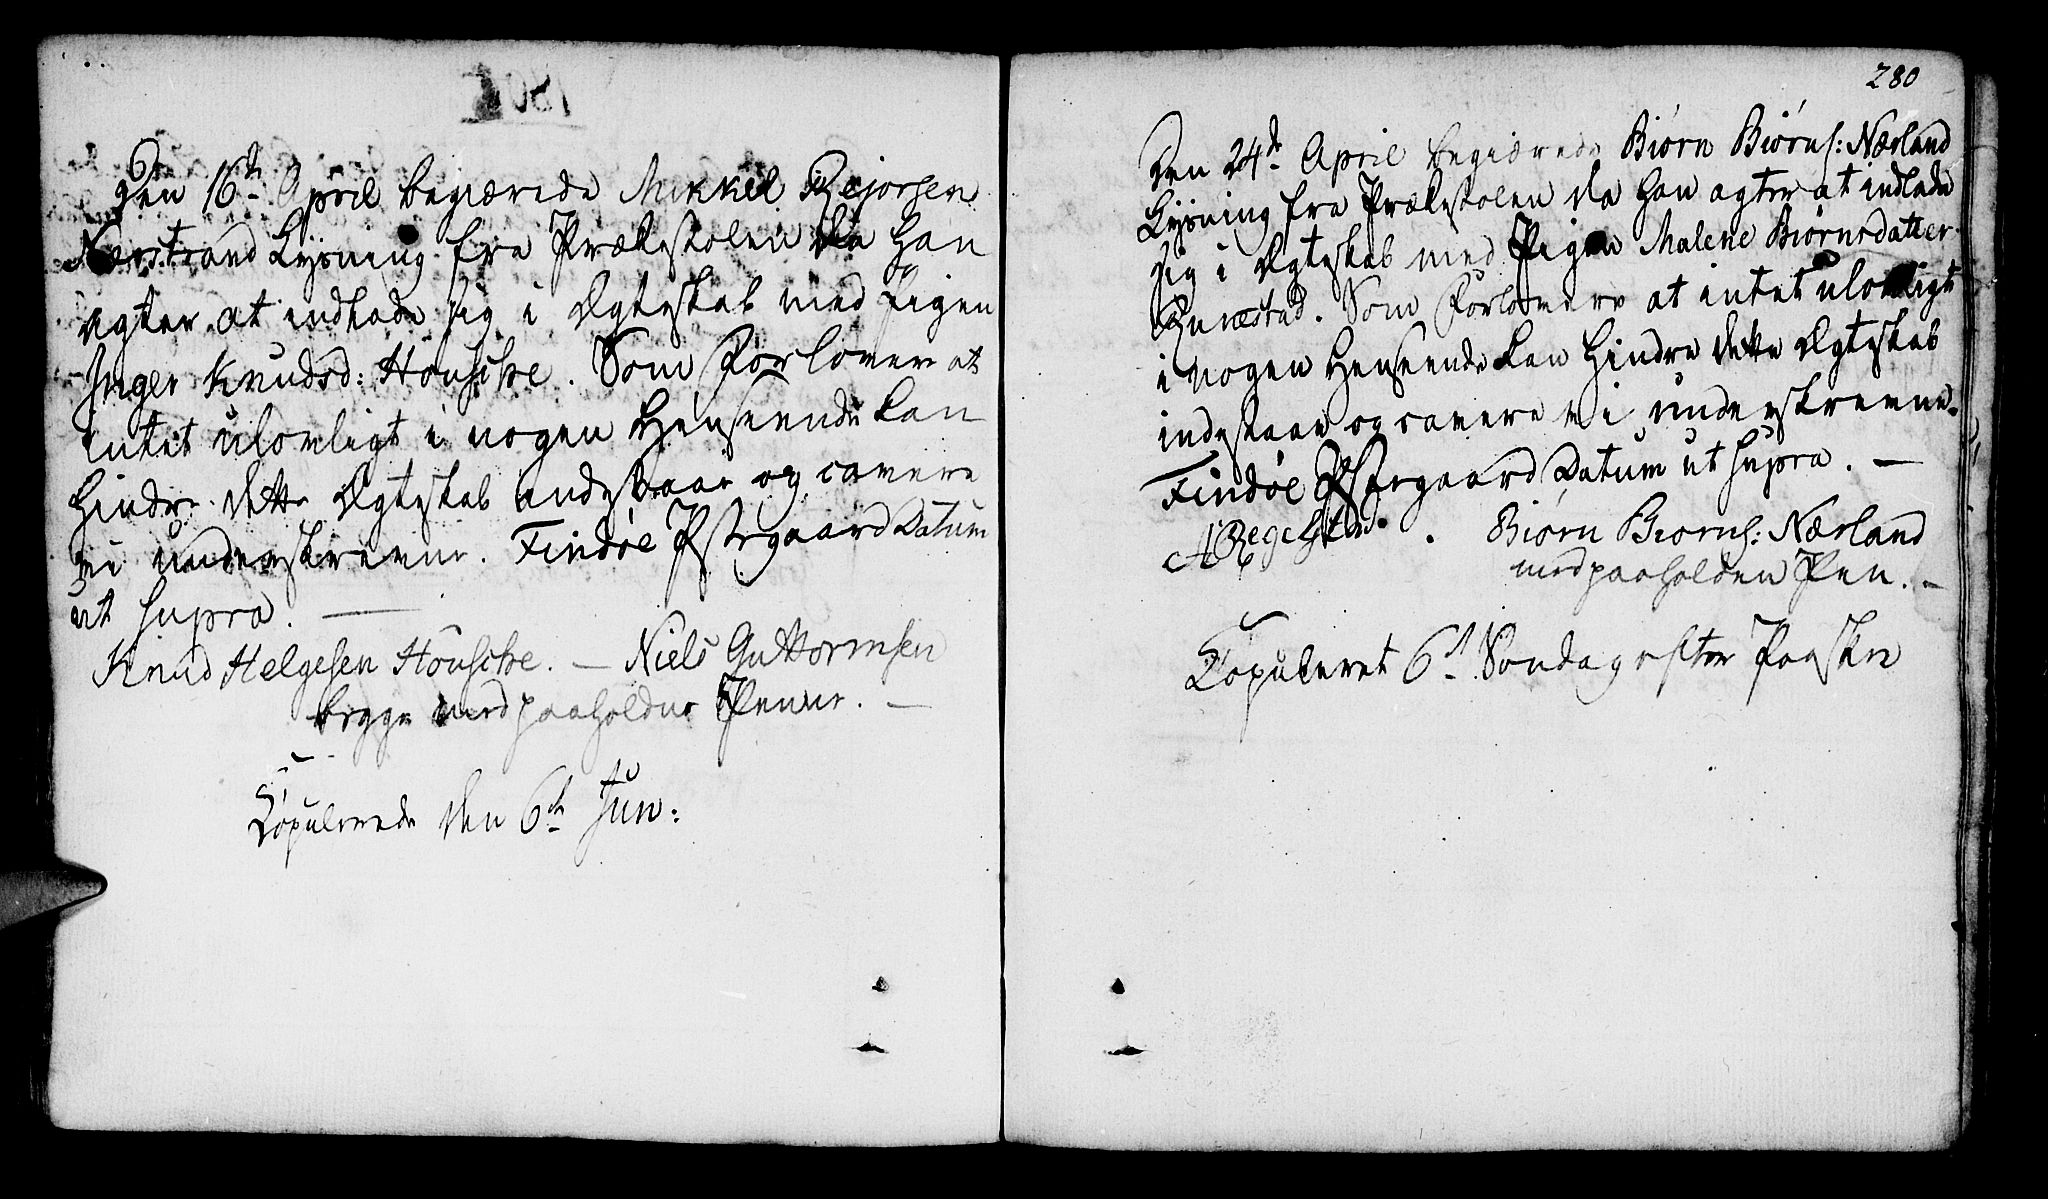 Den 16de April begiærede Mikkel Rejorsen
Nærstrand Lysning fra Prækestolen da han
agter at indlade sig i Ægteskab med Pigen
Inger Knudsd: Houscke. Som Forlovere at
intet ulovligt i nogen Henseende kan
hindre dette Ægteskab indestaar og cavere
vi underskrevne. Findøe Østergaard Datum
ut supra.
Knud Helgesen Houscke. – Niels Guttormsen
begge med paaholdne Penne. –
Copulerede den 6te Jun:
280
Den 24de April begiærede Biørn Biørns: Nærland
Lysning fra Prækestolen da han agter at indlade
sig i Ægteskab med Pigen Malene Biørnsdatter
. Som Forlovere at intet ulovligt
i nogen Henseende kan hindre dette Ægteskab
indestaar og cavere vi underskrevne.
Findøe Østergaard Datum ut supra. –
Biørn Biørns: Nærland
med paaholden Pen. –
Copuleret 6te Søndag efter Paaske